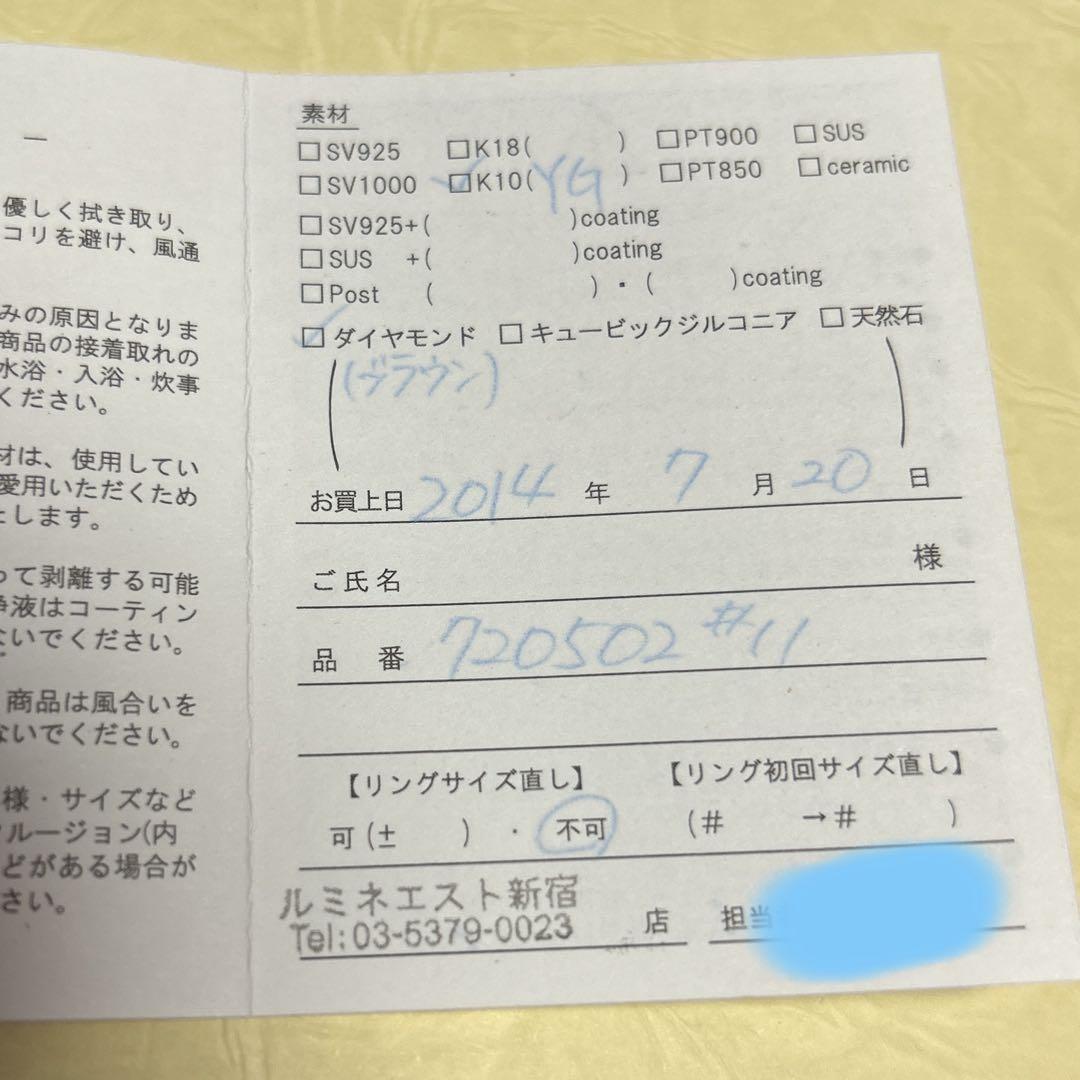 一
優しく拭き取り、
コリを避け、風通
みの原因となりま
商品の接着取れの
水浴・入浴・炊事
ください。
材は、使用してい
愛用いただくため
たします。
って剥離する可能
浄液はコーティン
ないでください。
商品は風合いを
ないでください。
様・サイズなど
クルージョン(内
どがある場合が
さい。
素材
□SV925 □K18( ) □PT900 □SUS
□SV1000 ☑K10(YG) □PT850 □ceramic
□SV925+( )coating
□SUS +( )coating
□Post ( )・( )coating
☑ダイヤモンド □キュービックジルコニア □天然石
(ブラウン)
お買上日 2014 年 7 月 20 日
ご氏名 様
品 番 720502 #11
【リングサイズ直し】 【リング初回サイズ直し】
可(± )・不可 (# →# )
ルミネエスト新宿
Tel:03-5379-0023 店 担当